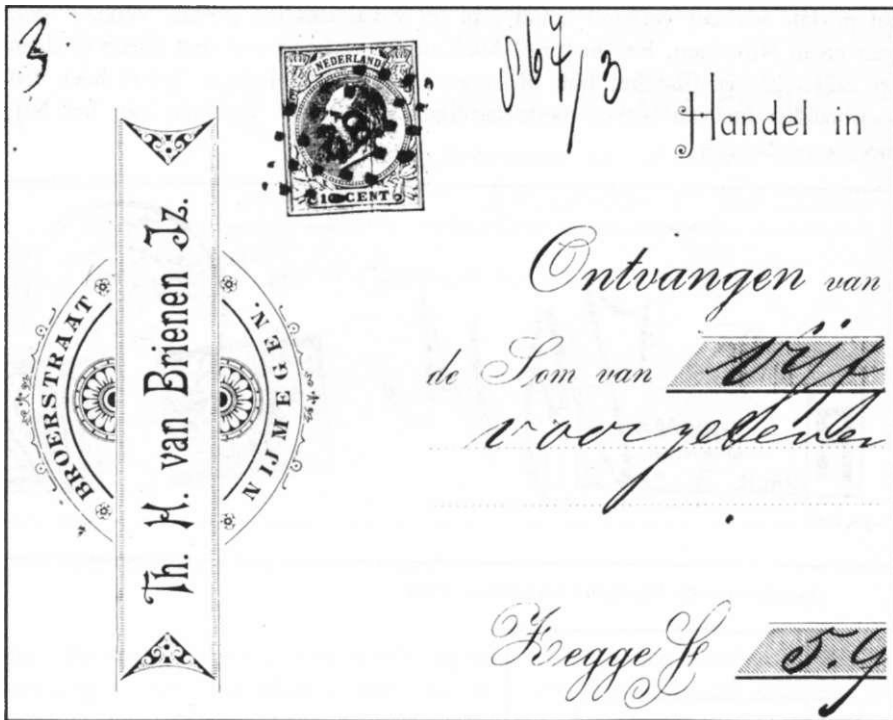 3
NEDERLAND
10 CENT
Handel in
BROERSTRAAT
Th. H. van Brienen Jz.
NIJMEGEN.
Ontvangen van
de Som van vijf
Zegge f 5.9